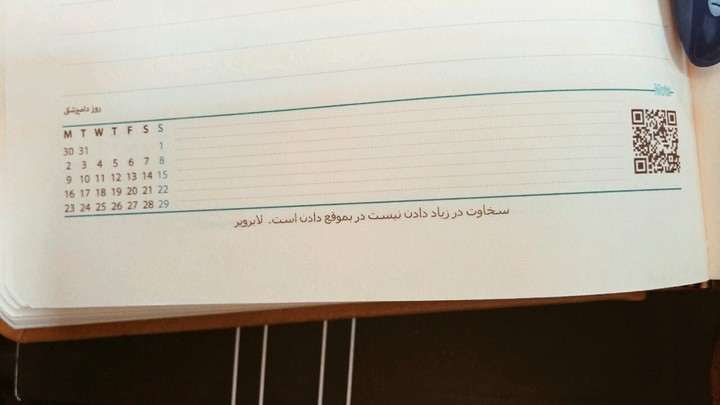 Note
روز دامپزشکی
M T W T F S S
30 31 1
2 3 4 5 6 7 8
9 10 11 12 13 14 15
16 17 18 19 20 21 22
23 24 25 26 27 28 29
سخاوت در زیاد دادن نیست در بموقع دادن است. لابرویر